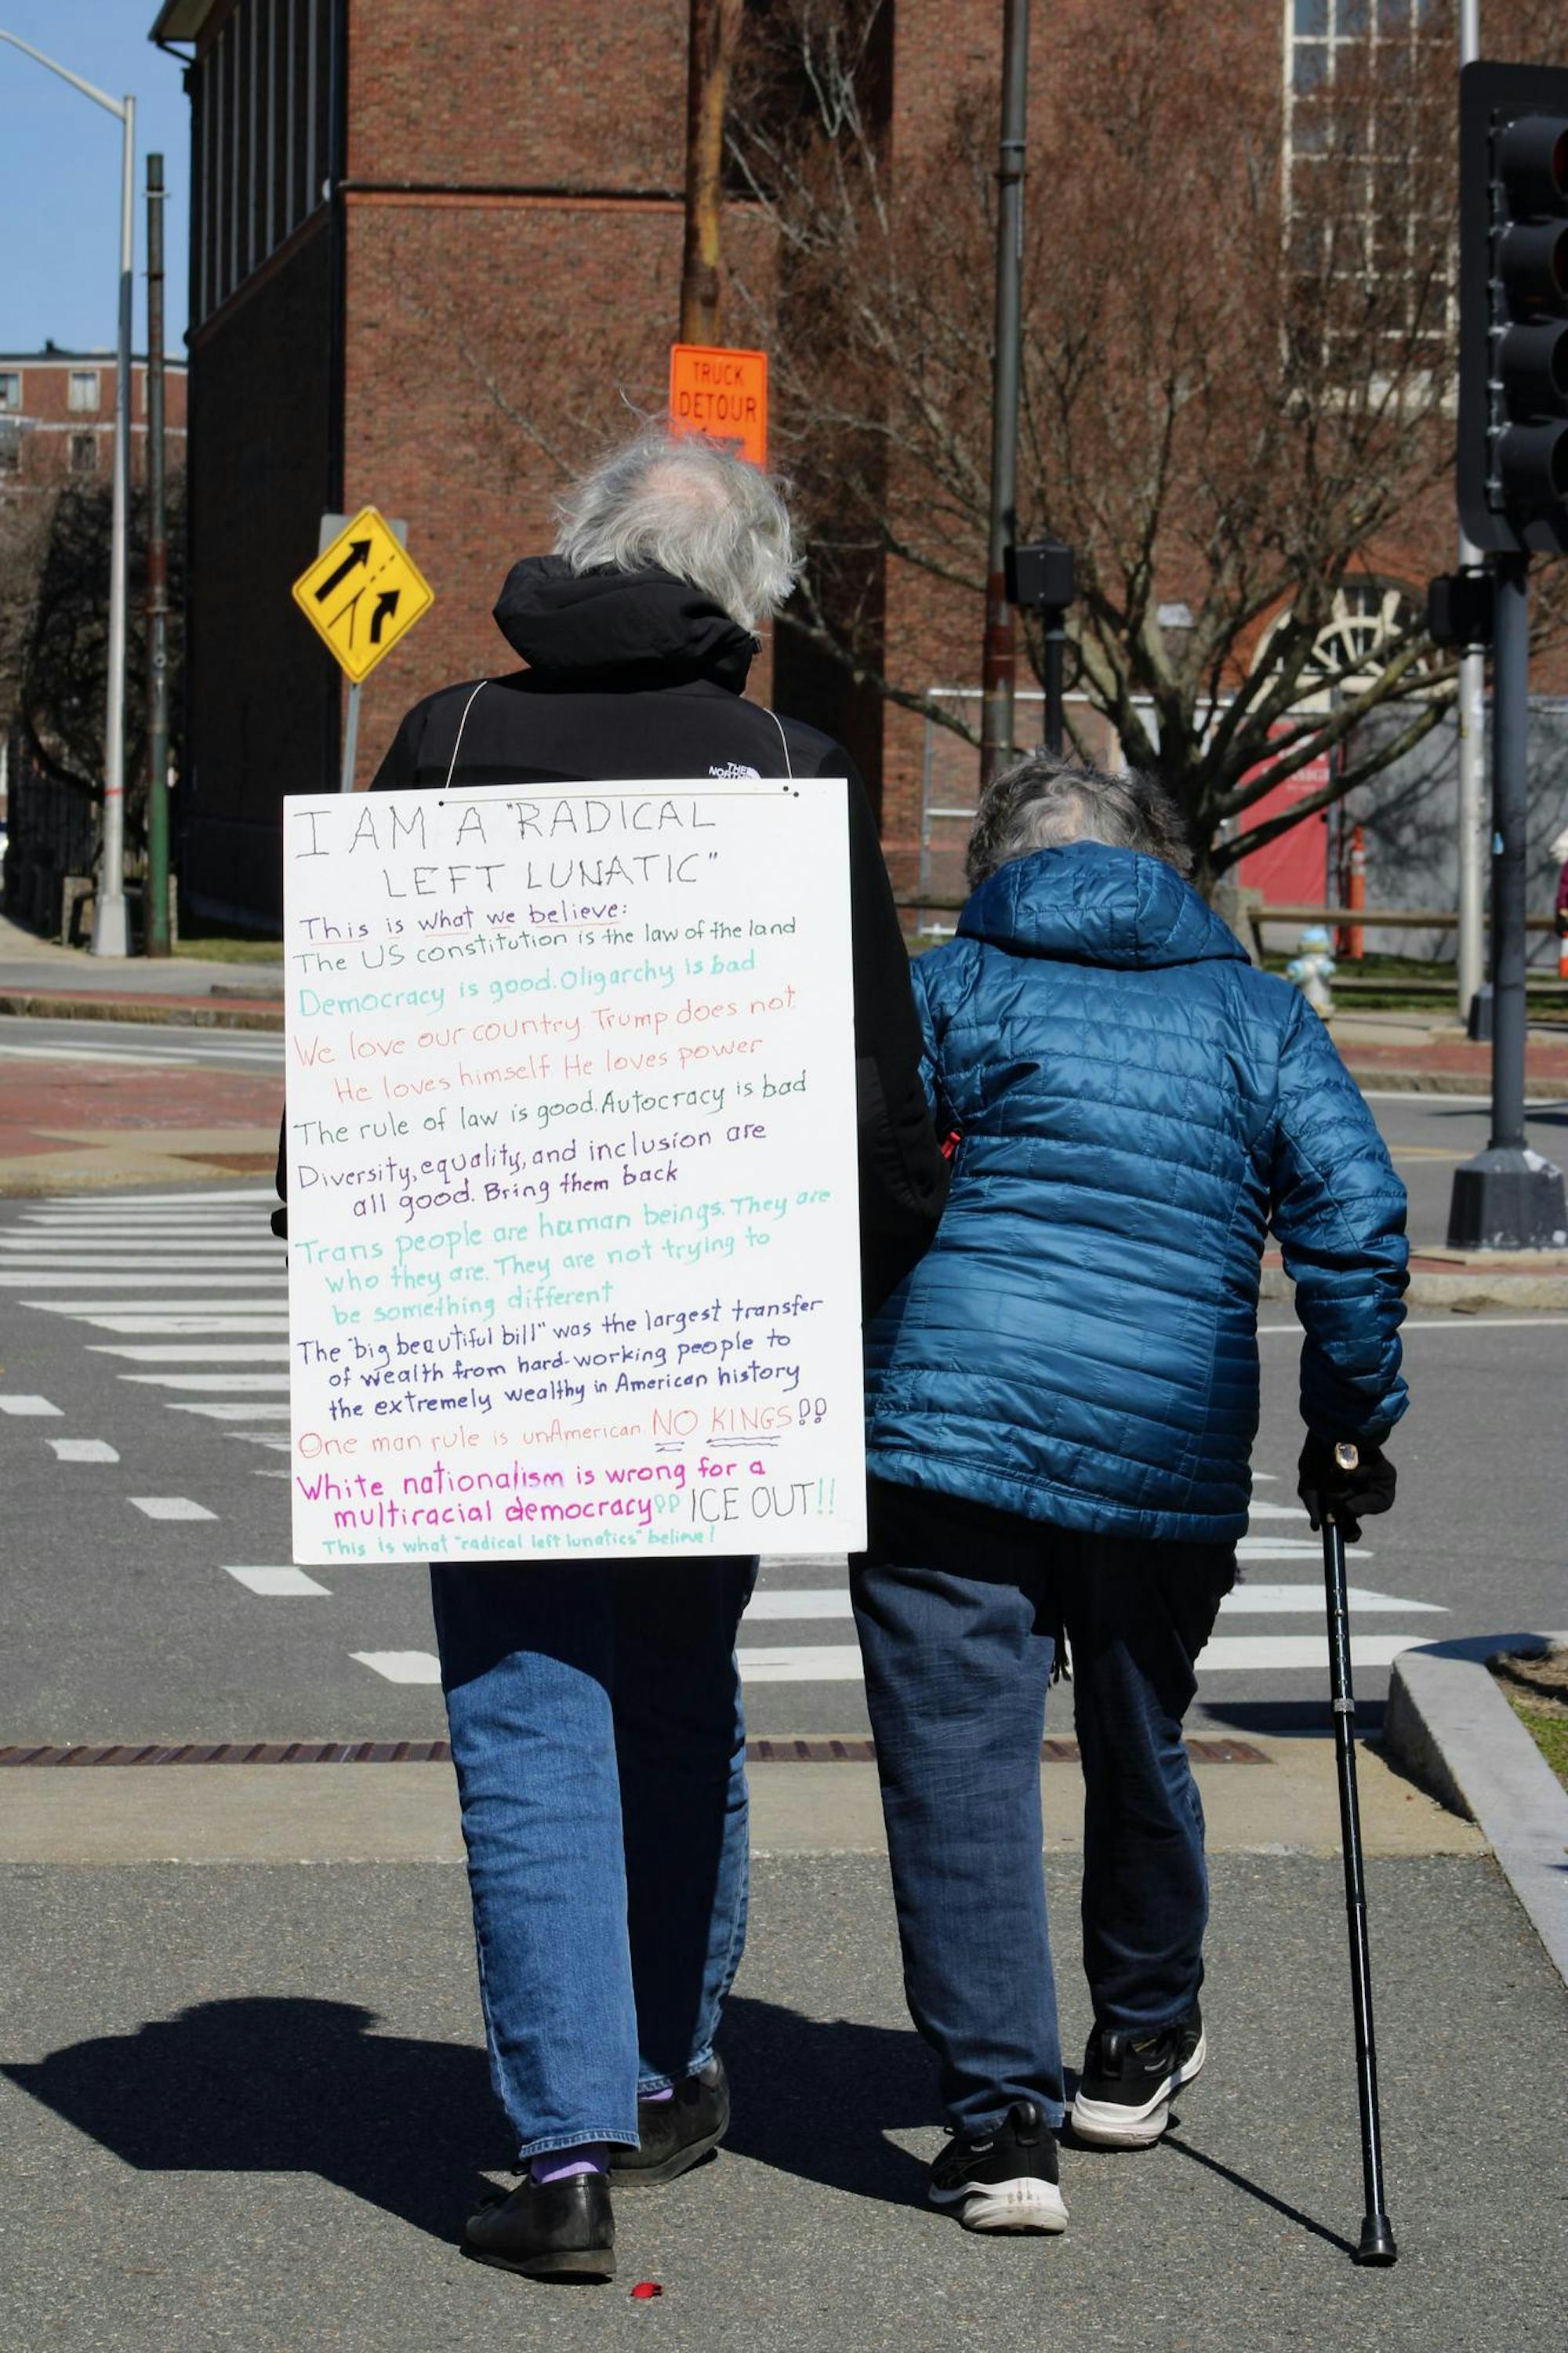 TRUCK
DETOUR
THE
NORTH
I AM A "RADICAL
LEFT LUNATIC"
This is what we believe:
The US constitution is the law of the land
Democracy is good. Oligarchy is bad
We love our country. Trump does not.
He loves himself. He loves power
The rule of law is good. Autocracy is bad
Diversity, equality, and inclusion are
all good. Bring them back
Trans people are human beings. They are
who they are. They are not trying to
be something different
The "big beautiful bill" was the largest transfer
of wealth from hard-working people to
the extremely wealthy in American history
One man rule is unAmerican. NO KINGS!!
White nationalism is wrong for a
multiracial democracy!! ICE OUT!!
This is what "radical left lunatics" believe!